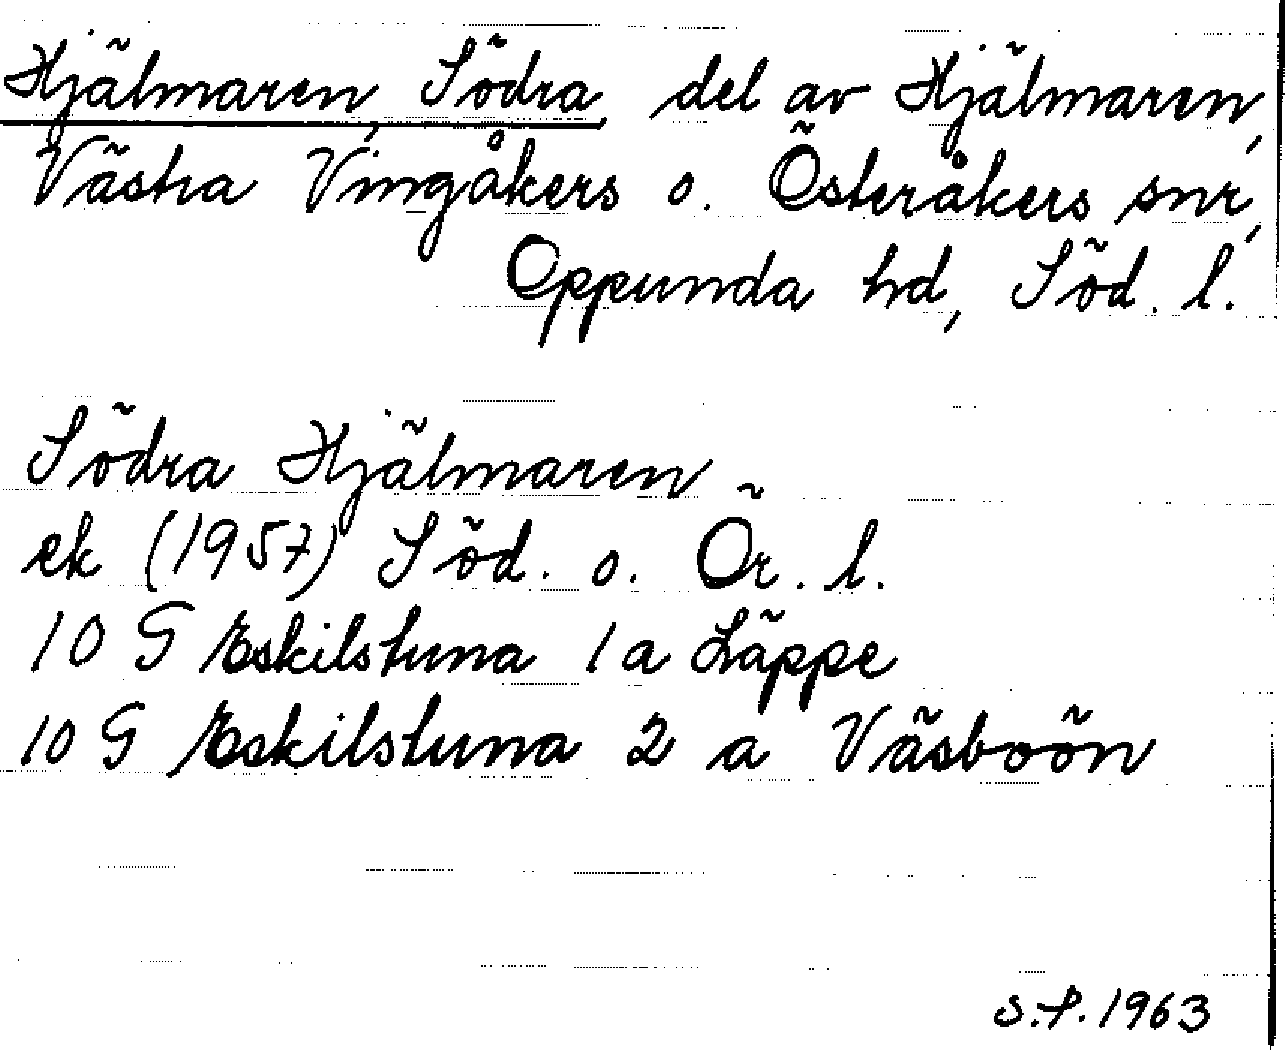 Hjälmaren, Södra, del av Hjälmaren,
Västra Vingåkers o. Österåkers snr,
Oppunda hd, Söd. l.
Södra Hjälmaren
ek (1957) Söd. o. Ör. l.
10 G Eskilstuna 1 a Läppe
10 G Eskilstuna 2 a Väsboön
S.P. 1963